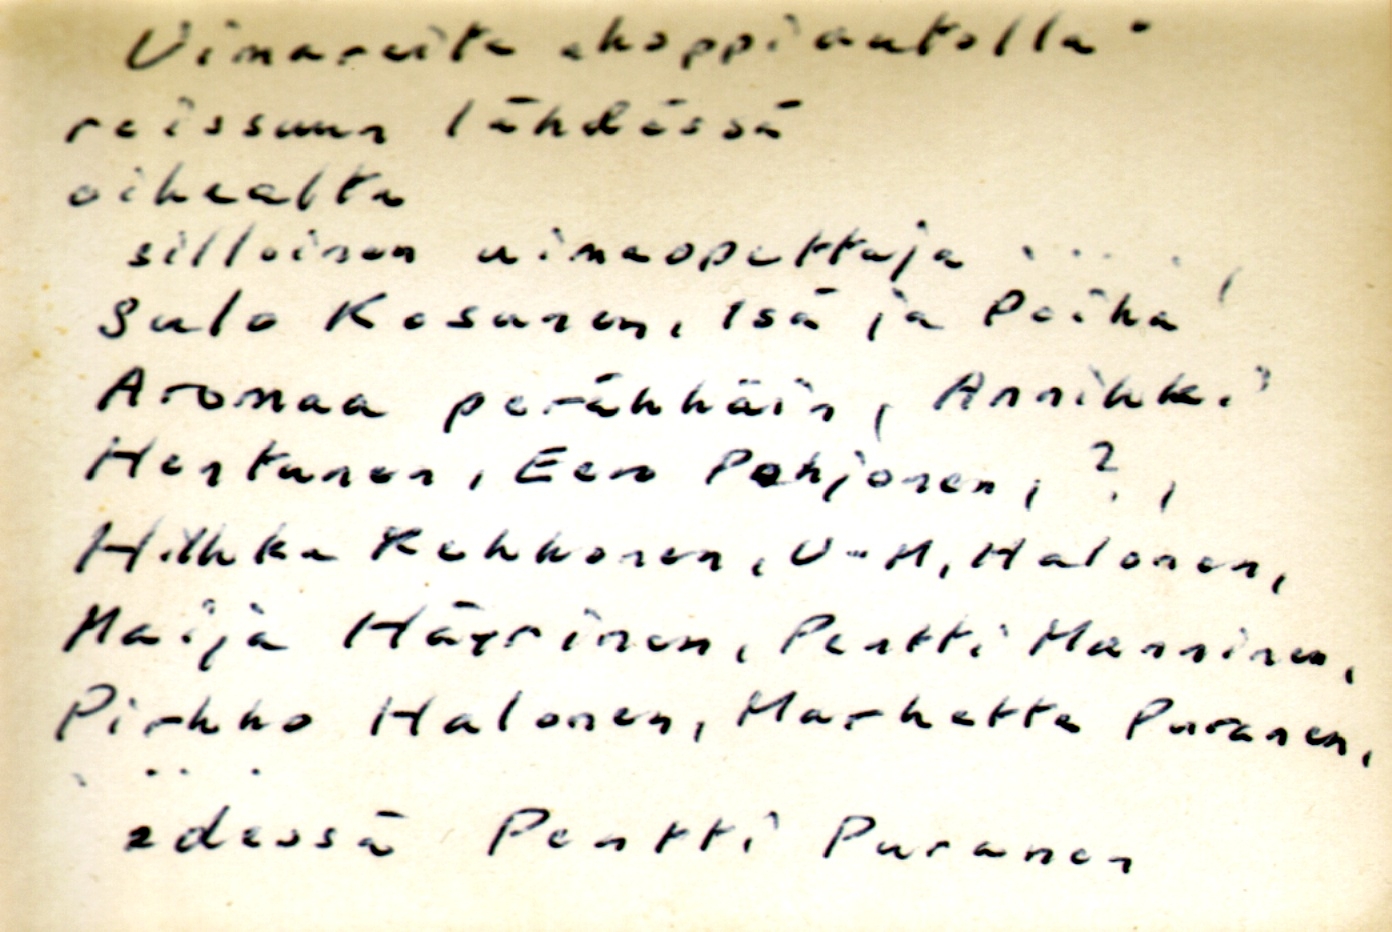 Uimareita koppiautolla
reissuun lähdössä
oikealta
silloinen uimaopettaja . . . . . ,
Sulo Kosunen, Isä ja Poika
Aromaa peräkkäin, Annikki
Hentunen, Eero Pohjonen, ? ,
Hilkka Kekkonen, U-M, Halonen,
Maija Häyrinen, Pentti Manninen,
Pirkko Halonen, Marketta Puranen,
. . . .
edessä Pentti Puranen